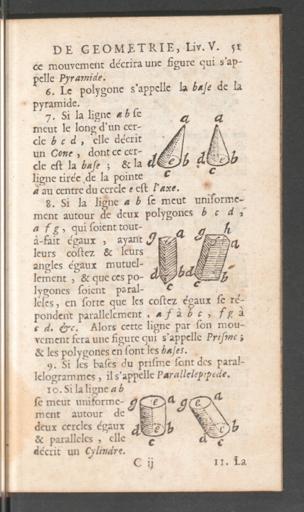 DE GEOMETRIE, Liv. V. 51
ce mouvement décrira une figure qui s'ap-
pelle Pyramide.
6. Le polygone s'appelle la base de la
pyramide.
7. Si la ligne a b se
meut le long d'un cer-
cle b c d, elle décrit
un Cone, dont ce cer-
cle est la base; & la
ligne tirée de la pointe
a au centre du cercle e est l'axe.
8. Si la ligne a b se meut uniforme-
ment autour de deux polygones b c d,
a f g, qui soient tout-
à-fait égaux, ayant
leurs costez & leurs
angles égaux mutuel-
lement, & que ces po-
lygones soient paral-
leles, en sorte que les costez égaux se ré-
pondent parallelement, a f à b c, f g à
c d. &c. Alors cette ligne par son mou-
vement fera une figure qui s'appelle Prisme;
& les polygones en sont les bases.
9. Si les bases du prisme sont des paral-
lelogrammes, il s'appelle Parallelepipede.
10. Si la ligne a b
se meut uniforme-
ment autour de
deux cercles égaux
& paralleles, elle
décrit un Cylindre.
C ij 11. La